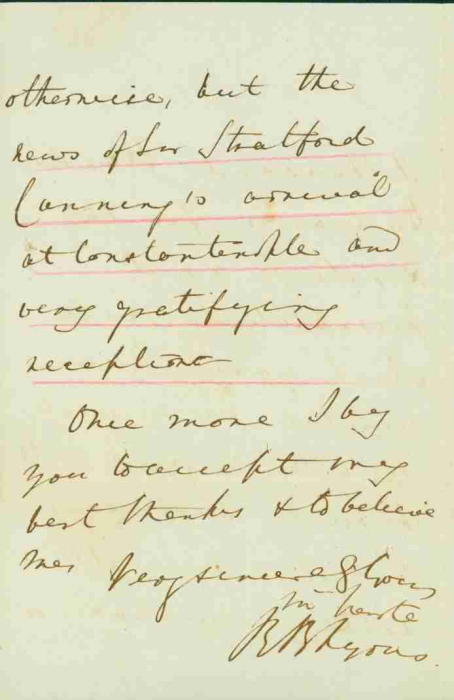 otherwise, but the
news of Sir Stratford
Canning's arrival
at Constantinople and
very gratifying
reception
Once more I beg
you to accept my
best thanks & to believe
me, Very sincerely Yours
in haste
R B Lyons